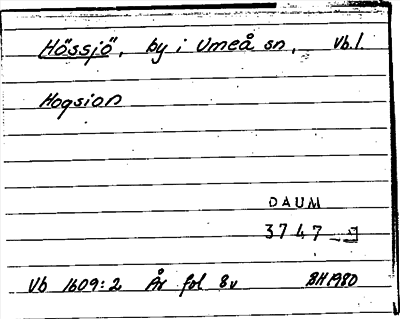 Hössjö, by i Umeå sn, Vb.l.
Hogsion
DAUM
3747
Vb 1609:2 År fol 8v BH 1980